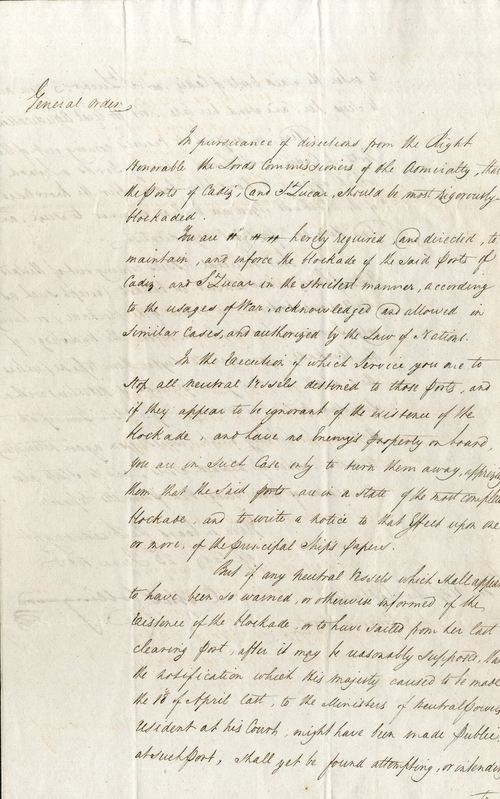 General Order
In pursuance of directions from the Right
Honorable the Lords Commissioners of the Admiralty, that
the Ports of Cadiz, and St. Lucar, should be most rigorously
blockaded.
You are hereby required, and directed, to
maintain, and enforce the blockade of the said Ports of
Cadiz, and St. Lucar in the strictest manner, according
to the usages of War, acknowledged and allowed in
similar Cases, and authorized by the Law of Nations.
In the Execution of which Service you are to
stop all neutral Vessels destined to those Ports, and
if they appear to be ignorant of the existence of the
blockade, and have no Enemy's property on board,
you are in such Case only to turn them away, apprizing
them that the said Ports are in a state of the most complete
blockade, and to write a notice to that Effect upon one
or more, of the principal Ship's papers.
But if any neutral Vessels which shall appear
to have been so warned, or otherwise informed of the
Existence of the blockade, or to have sailed from her last
clearing port, after it may be reasonably supposed, that
the notification which his Majesty caused to be made
the of April last, to the Ministers of neutral Powers
resident at his Court, might have been made public,
at such Port, shall yet be found attempting, or intending
to